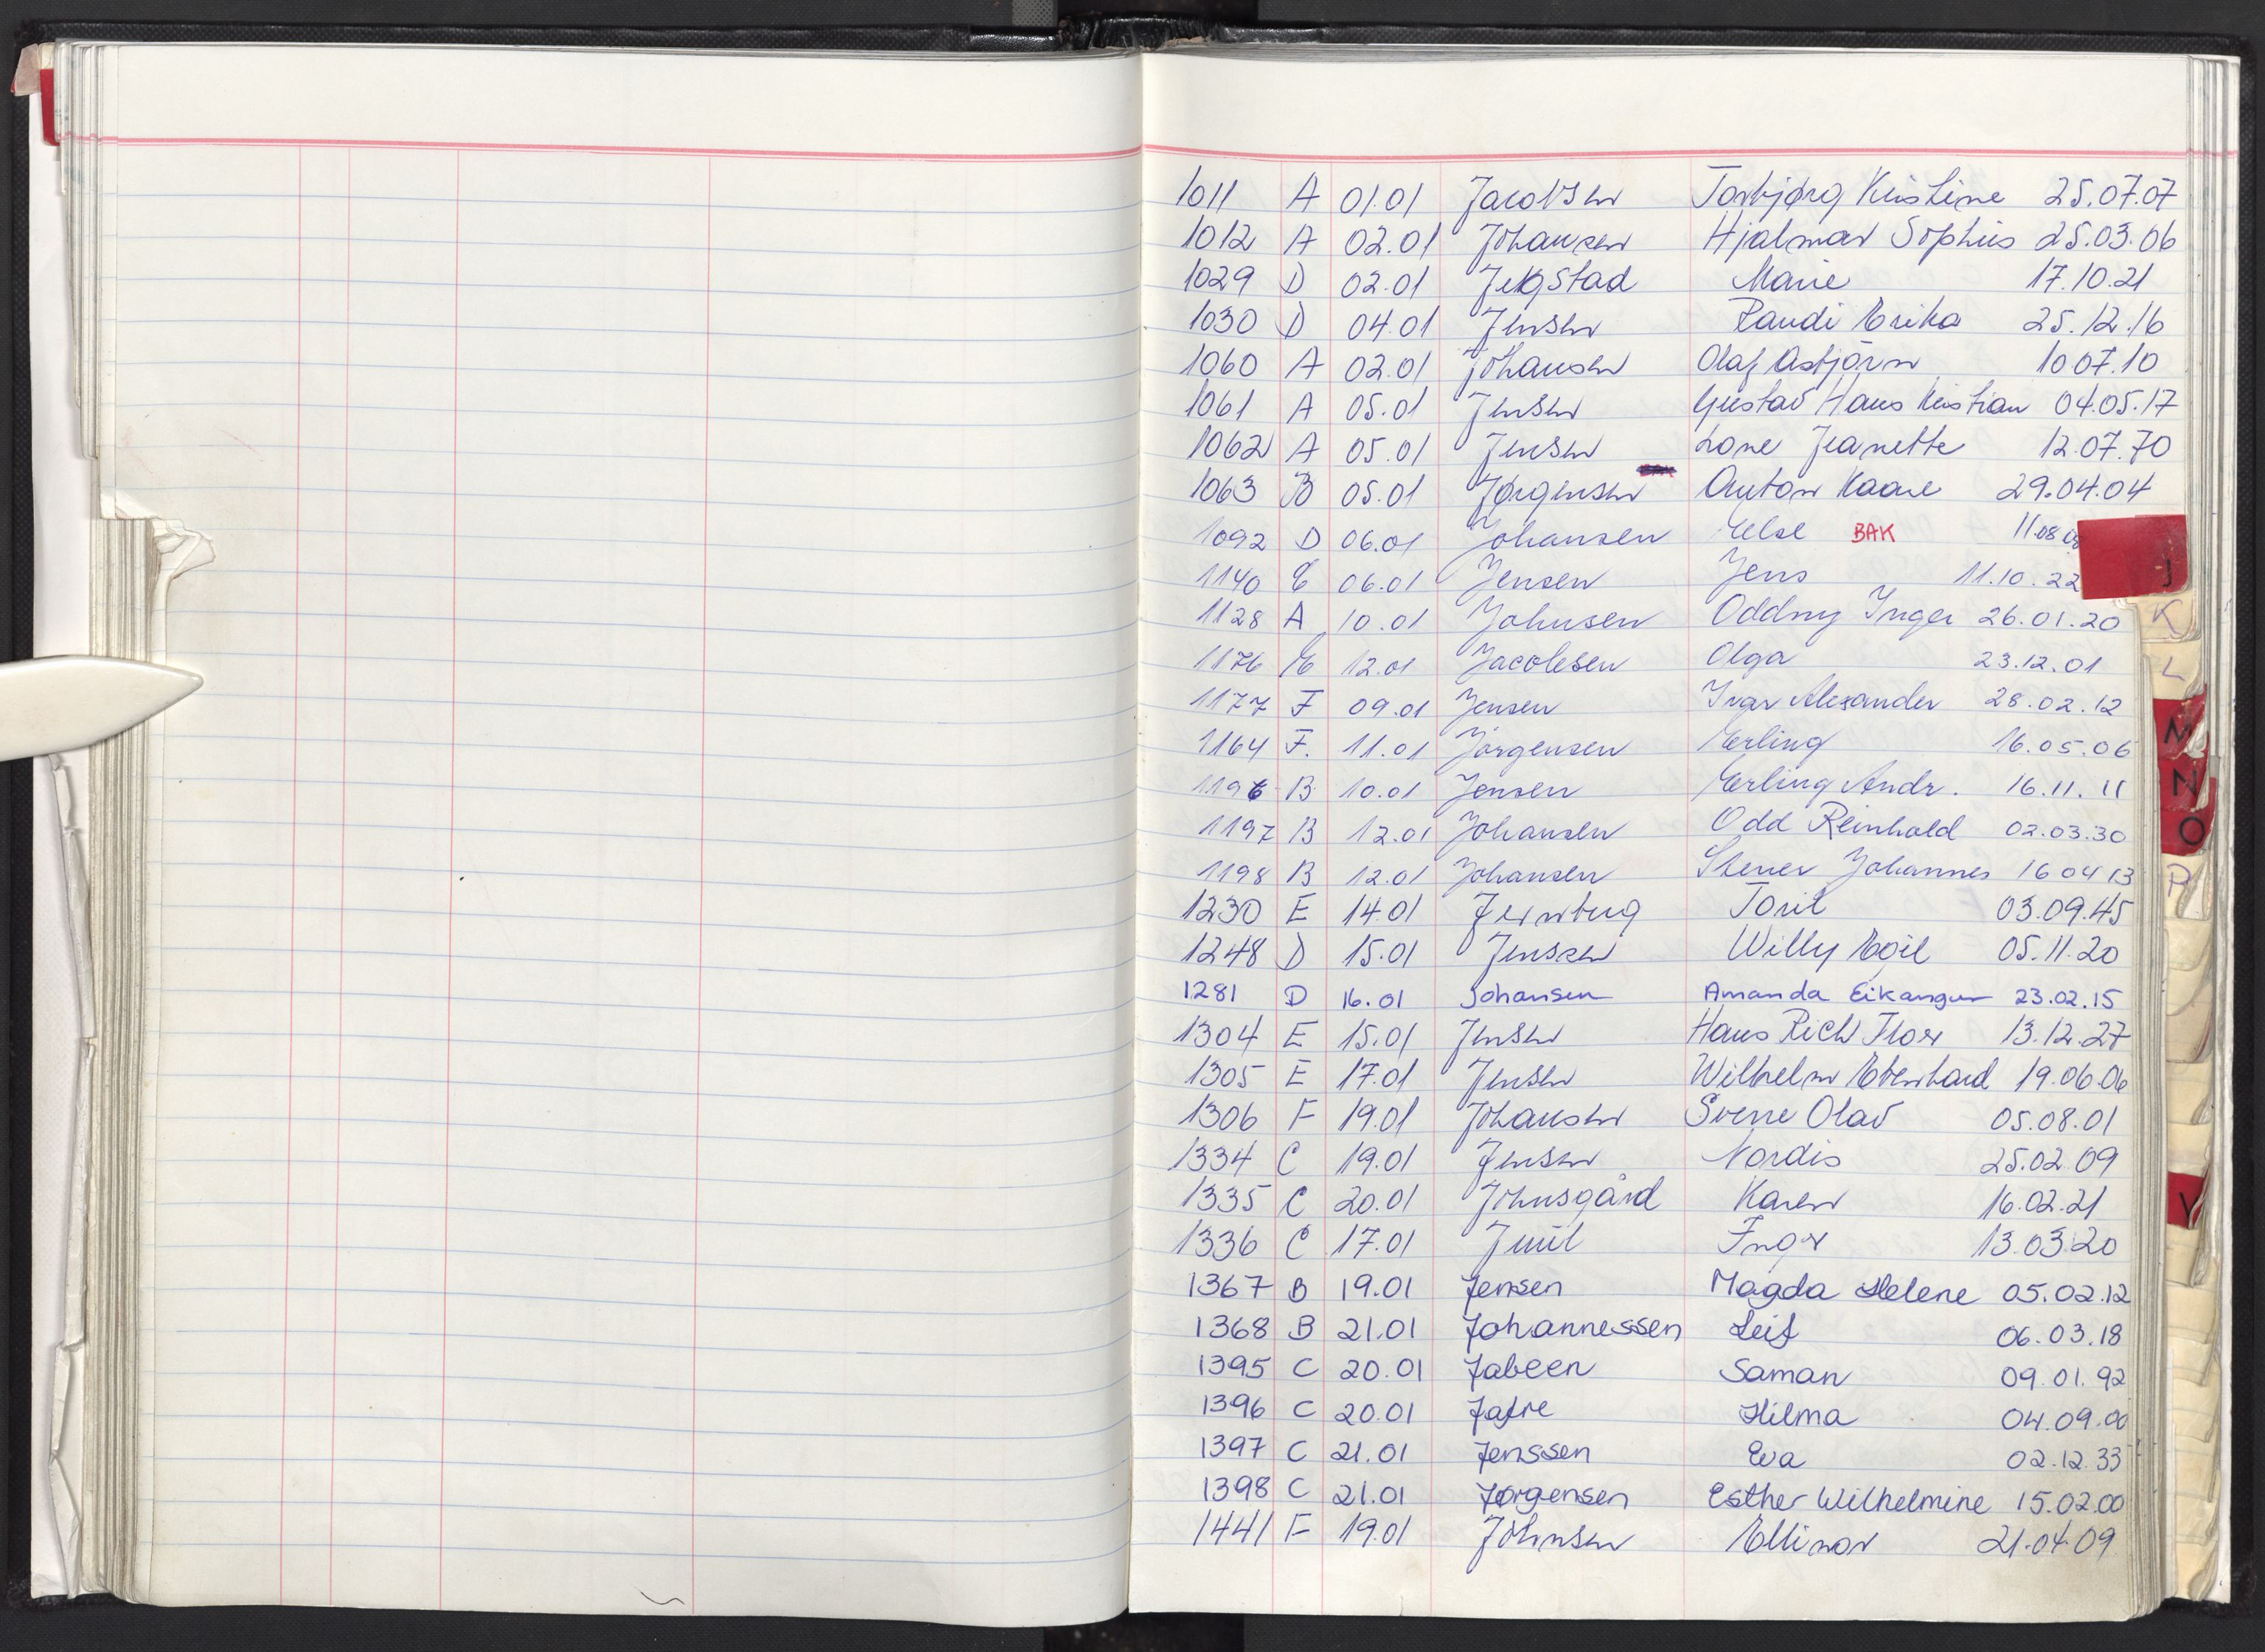 1011 A 01.01 Jacobsen Torbjørg Kristine 25.07.07
1012 A 02.01 Johansen Hjalmar Sophus 25.03.06
1029 D 02.01 Marie 17.10.21
1030 D 04.01 Jensen Randi Erika 25.12.16
1060 A 02.01 Johansen Olaf Asbjörn 10 07.10
1061 A 05.01 Jensen Gustav Hans Kristian 04.05.17
1062 A 05.01 Jensen Lone Jeanette 12.07.70
1063 B 05.01 Jørgensen Anton Kaare 29.04.04
1092 D 06.01 Johansen Else BAK 11.08
J
1140 E 06.01 Jensen Jens 11.10.22
K
1128 A 10.01 Johnsen Oddny Inger 26.01.20
1176 E 12.01 Jacobsen Olga 23.12.01
L
1177 F 09.01 Jensen Ivar Alexander 28.02.12
M
1164 F. 11.01 Jörgensen Erling 16.05.06
1196 B 10.01 Jensen Erling Andr. 16.11.11
N
1197 B 12.01 Johansen Odd Reinhold 02.03.30
O
1198 B 12.01 Johansen Stener Johannes 16 04 13
P
1230 E 14.01 Jernberg Toril 03.09.45
1248 D 15.01 Jensen Willy Egil 05.11.20
1281 D 16.01 Johansen Amanda Eikanger 23.02.15
1304 E 15.01 Jensen Hans Rich Thor 13.12.27
1305 E 17.01 Jensen Wilhelm Eberhard 19.06.06
1306 F 19.01 Johansen Sverre Olav 05.08.01
1334 C 19.01 Jensen Nordis 25.02.09
1335 C 20.01 Johnsgård Karen 16.02.21
V
1336 C 17.01 Juul Inger 13.03.20
1367 B 19.01 Jensen Magda Helene 05.02.12
1368 B 21.01 Johannessen Leif 06.03.18
1395 C 20.01 Jabeen Saman 09.01.92
1396 C 20.01 Jafre Hilma 04.09.00
1397 C 21.01 Jenssen Eva 02.12.33
1398 C 21.01 Jørgensen Esther Wilhelmine 15.02.00
1441 F 19.01 Johnsen Ellinor 21.04.09